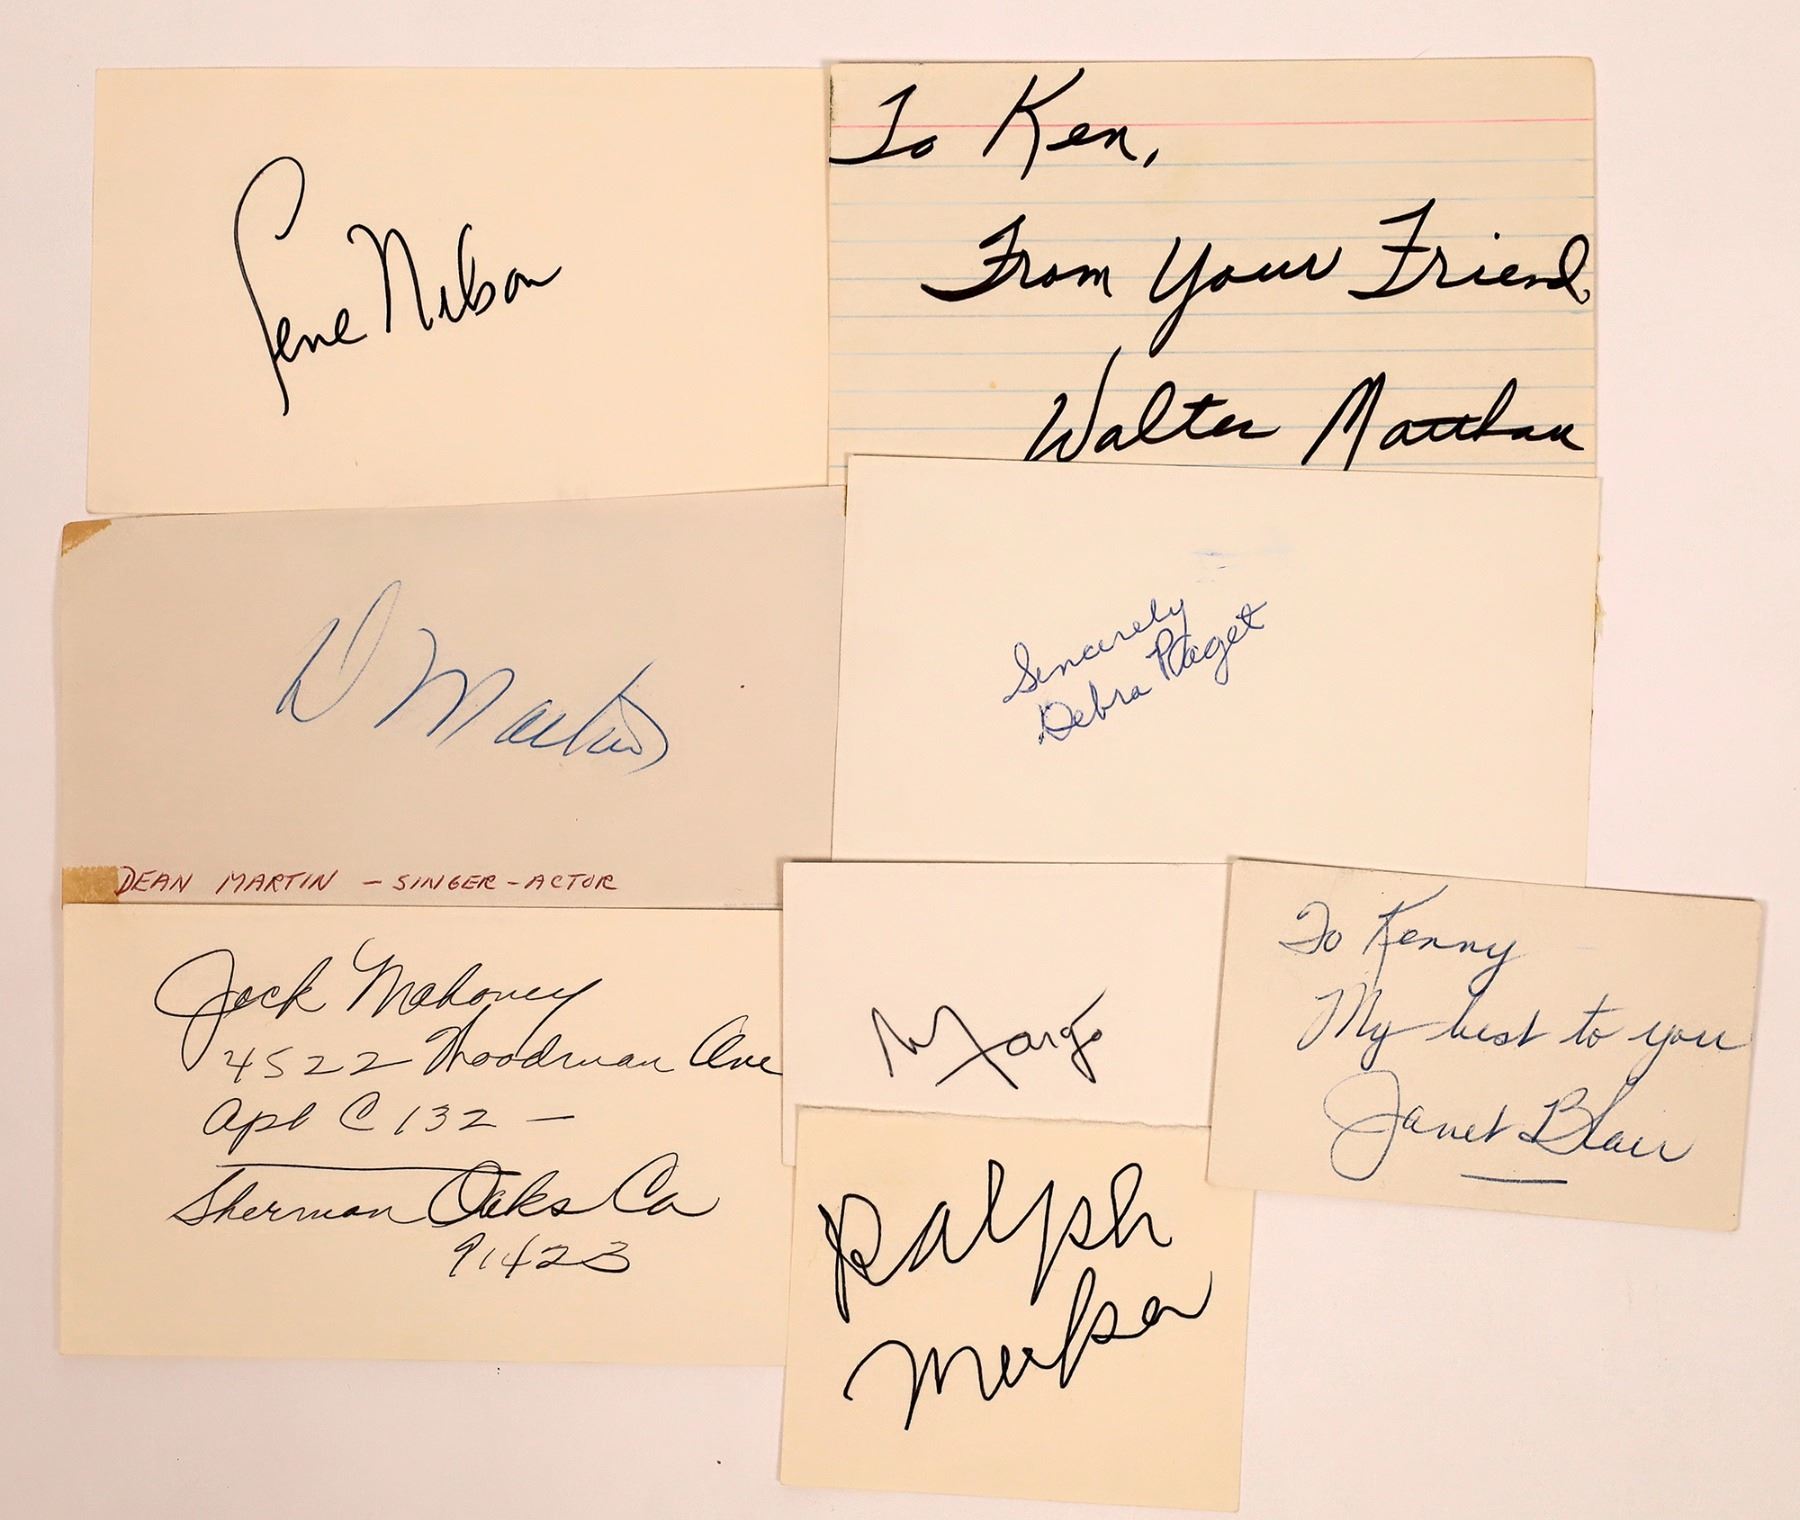 Gene Nelson
To Ken,
From Your Friend
Walter Matthau
D Martin
DEAN MARTIN - SINGER - ACTOR
Sincerely
Debra Paget
Jock Mahoney
4522 Woodman Ave
Apt C 132 -
Sherman Oaks Ca
91423
Margo
To Kenny
My best to you
Janet Blair
Ralph
Meeker